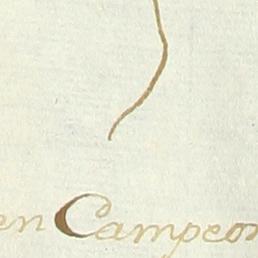 en Campeon